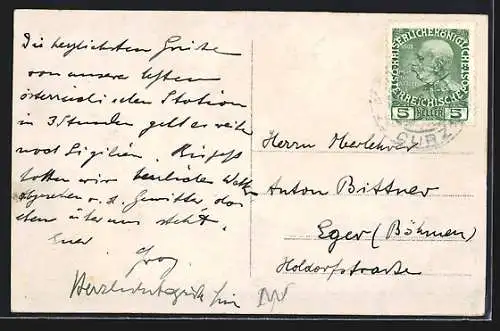 Die herzlichsten Grüße
von unserer letzten
österreichischen Station
in 3 Stunden geht es weiter
nach Sizilien.
hatten wir herrliches Wetter
abgesehen v. d. Gewitter das
eben über uns steht.
Euer
KAISERLICHE KÖNIGLICHE
ÖSTERREICHISCHE
5 HELLER 5
Herrn Oberlehrer
Anton Bittner
Eger (Böhmen)
Holdorfstrasse